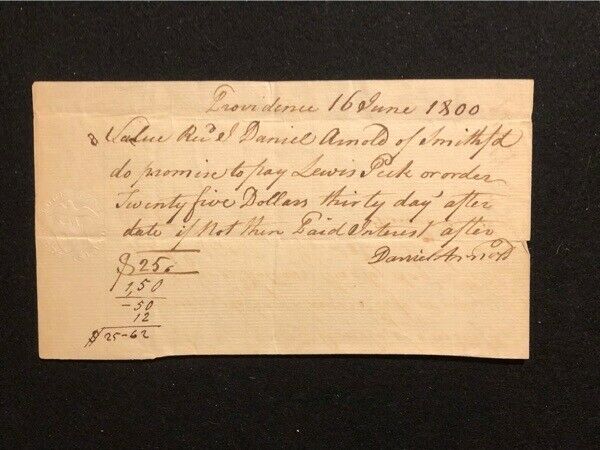 Providence 16 June 1800
Value Rec.d I Daniel Arnold of Smithf.d
do promise to pay Lewis Peck or order
Twenty five Dollars thirty day after
date if Not then Paid Interest after
Daniel Arnold
$25.
1,50
-50
12
$25-62